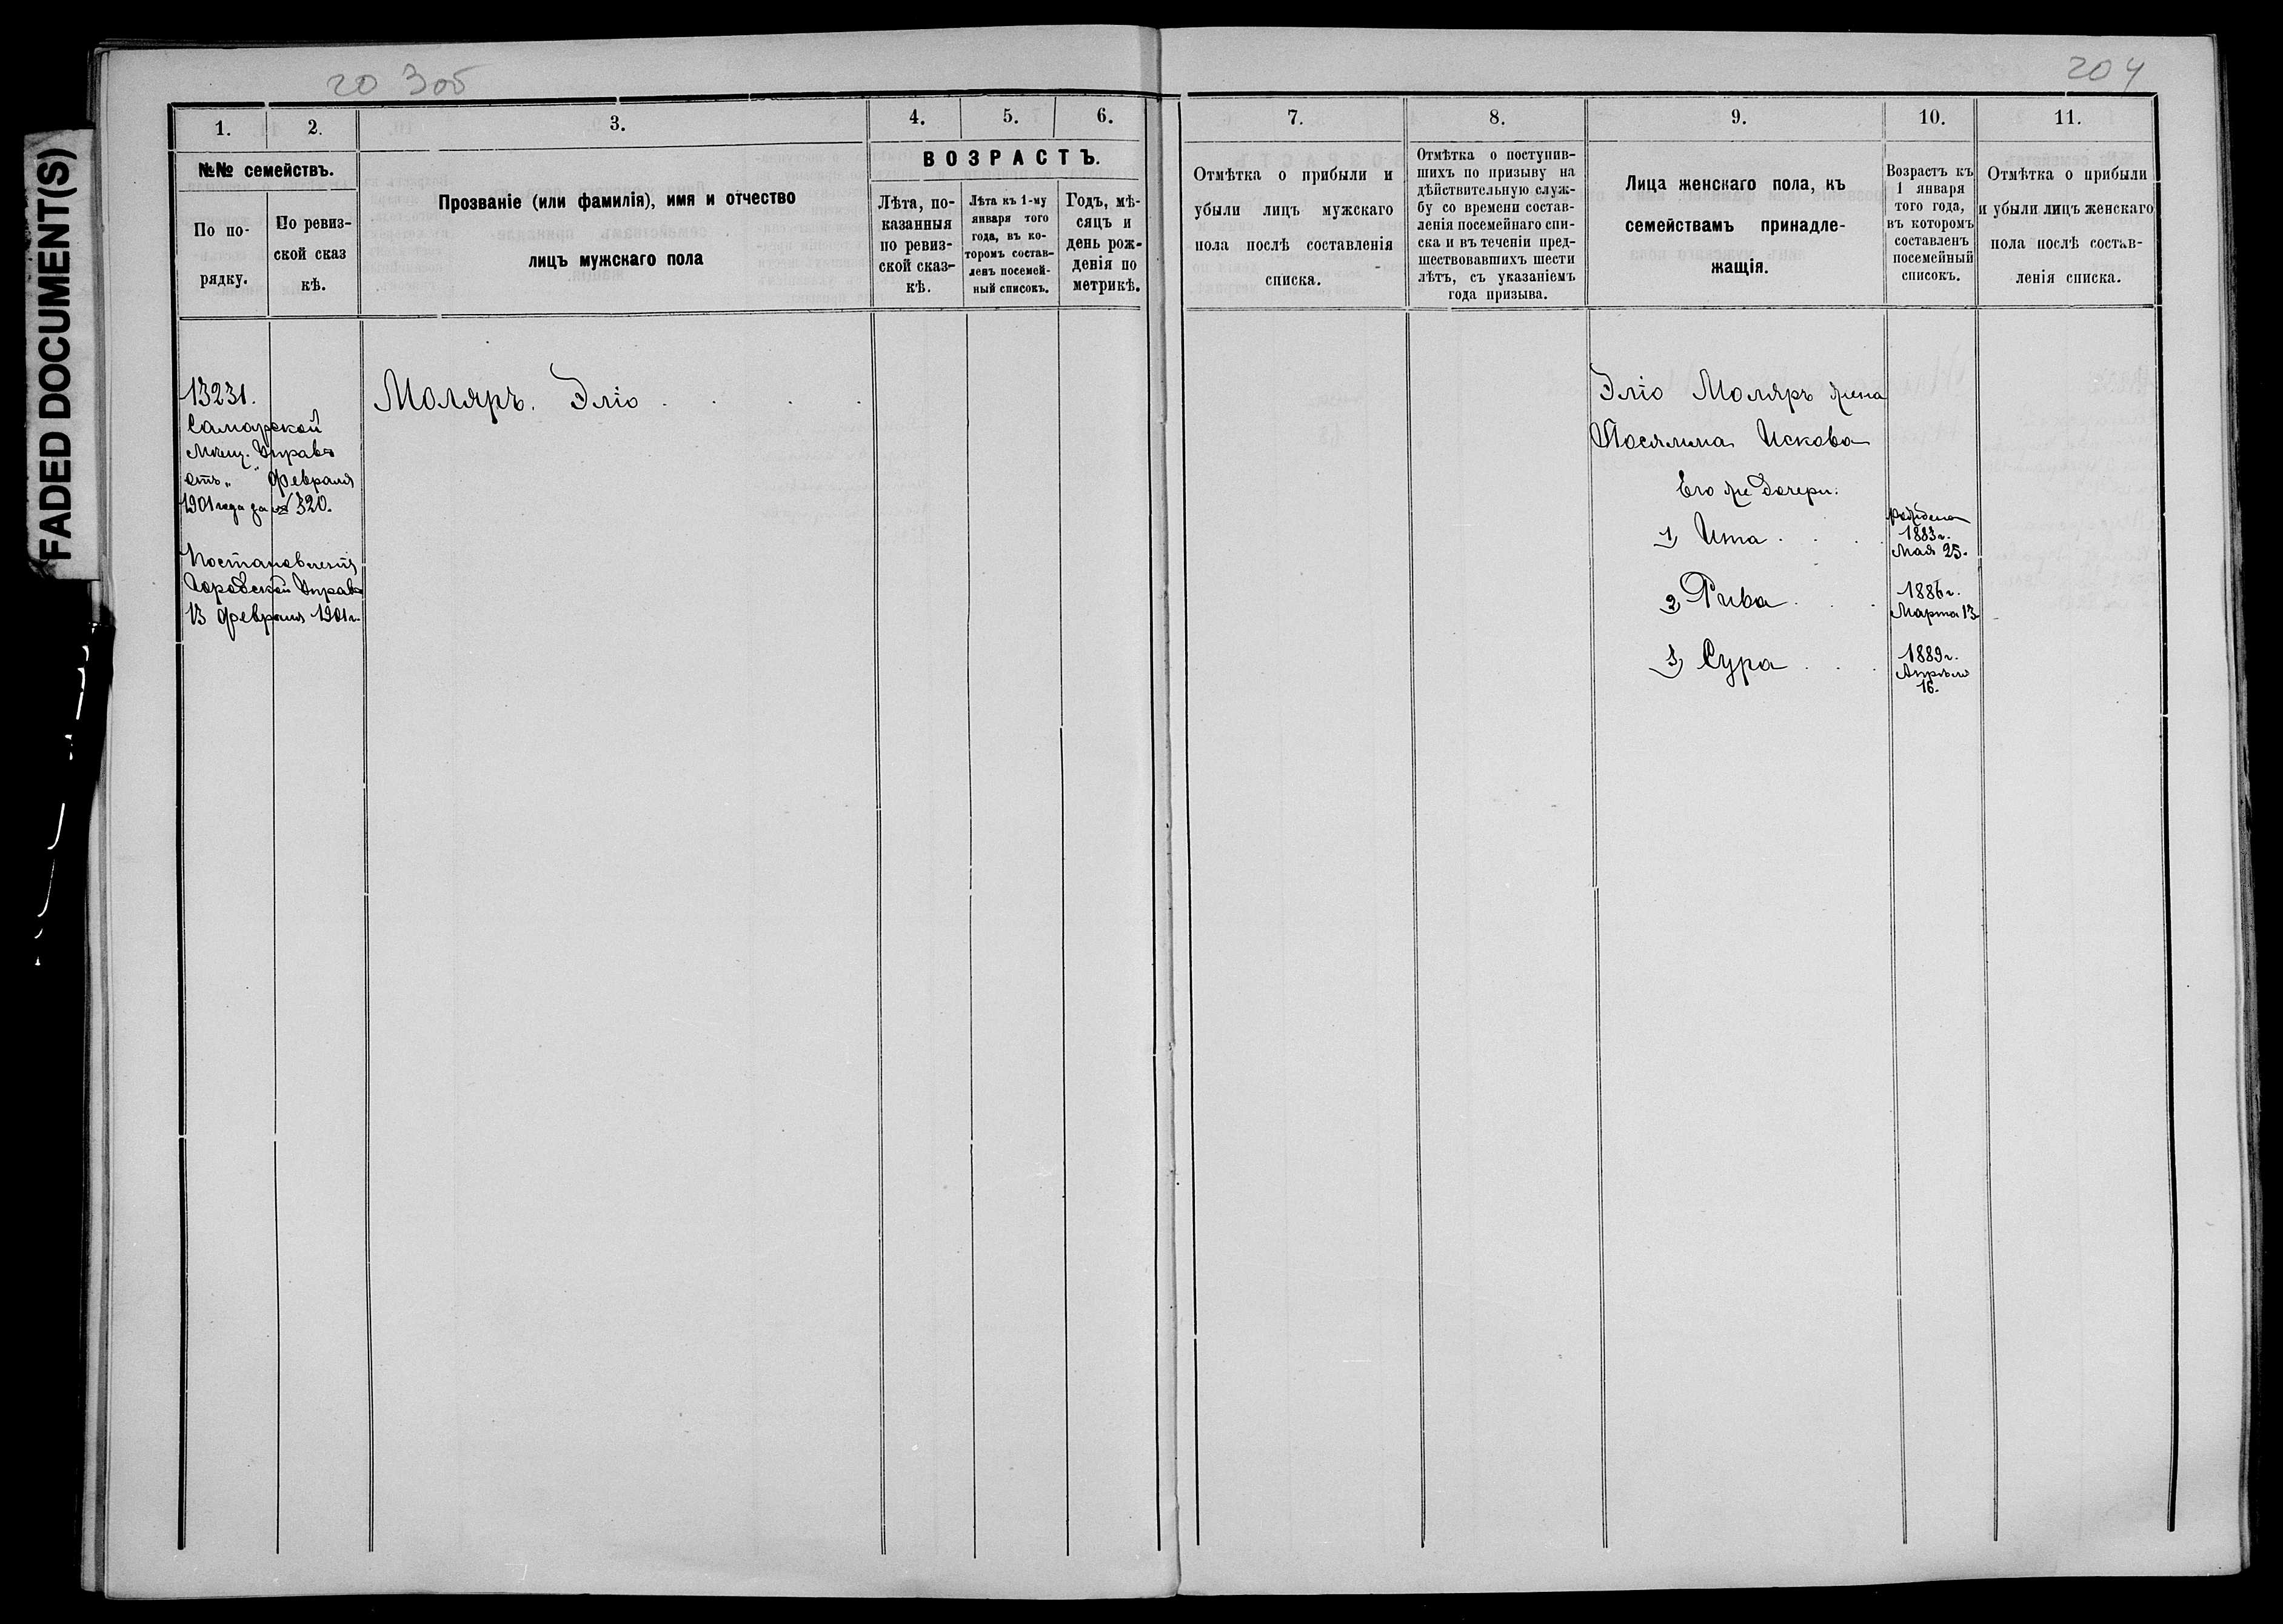 FADED DOCUMENT(S)
203об
204
1. 2. 3. 4. 5. 6.
№№ семействъ.
По по-
рядку.
По ревиз-
ской сказ
кѣ.
Прозваніе (или фамилія), имя и отчество
лицъ мужскаго пола
ВОЗРАСТЪ.
Лѣта, по-
казанныя
по ревиз-
ской сказ-
кѣ.
Лѣта къ 1-му
января того
года, въ ко-
торомъ состав-
ленъ посемей-
ный списокъ.
Годъ, мѣ-
сяцъ и
день рож-
денія по
метрикѣ.
7. 8. 9. 10. 11.
Отмѣтка о прибыли и
убыли лицъ мужскаго
пола послѣ составленія
списка.
Отмѣтка о поступив-
шихъ по призыву на
дѣйствительную служ-
бу со времени состав-
ленія посемейнаго спи-
ска и въ теченіи пред-
шествовавшихъ шести
лѣтъ, съ указаніемъ
года призыва.
Лица женскаго пола, къ
семействамъ принадле-
жащія.
Возрастъ къ
1 января
того года,
въ которомъ
составленъ
посемейный
списокъ.
Отмѣтка о прибыли
и убыли лицъ женскаго
пола послѣ состав-
ленія списка.
13231.
Самарской
Мѣщ. Управы
отъ „ " Февраля
1901 года за № 320.
Постановленія
Городской Управы
13 Февраля 1901 г.
Моляръ. Эліо . . . .
Эліо Моляръ жена
Искова
Его же дочери:
1) Ита . . . .
рождена
1883 г.
Мая 25.
2) Рива . . .
1886 г.
Марта 13
3) Сура . . .
1889 г.
Апрѣля
16.